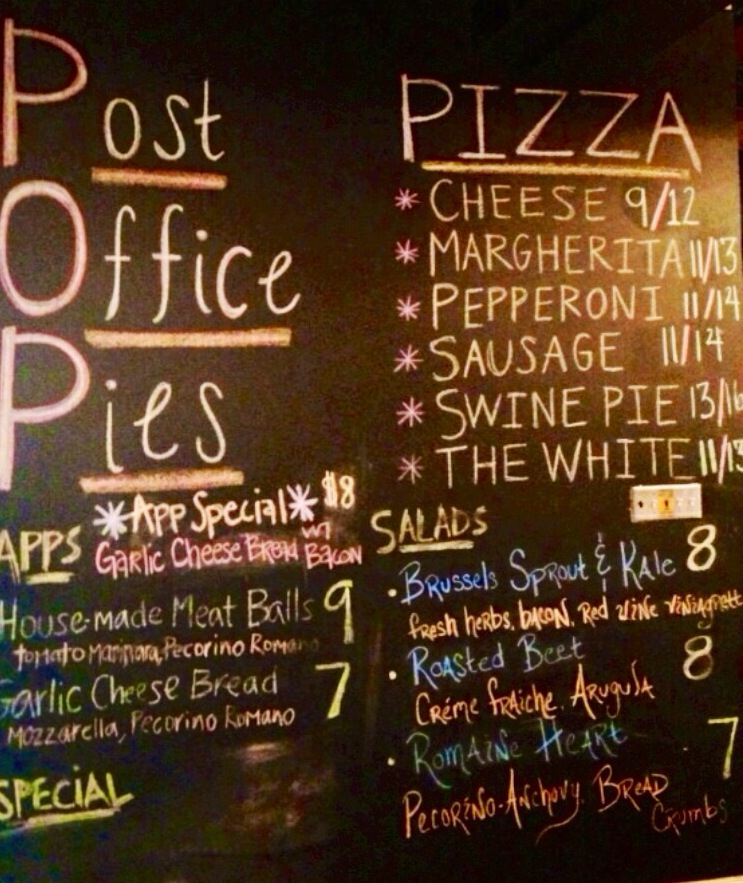 Post
Office
Pies
*App Special* $8
APPS
Garlic Cheese Bread w/ Bacon
House-made Meat Balls 9
tomato Marinara, Pecorino Romano
Garlic Cheese Bread 7
Mozzarella, Pecorino Romano
SPECIAL
PIZZA
* CHEESE 9/12
* MARGHERITA 11/13
* PEPPERONI 11/14
* SAUSAGE 11/14
* SWINE PIE 13/16
* THE WHITE 11/13
SALADS
• Brussels Sprout & Kale 8
fresh herbs, bacon, Red wine vinaigrett
• Roasted Beet 8
Créme fraiche, Arugula
• Romaine Heart 7
Pecorino-Anchovy Bread
Crumbs